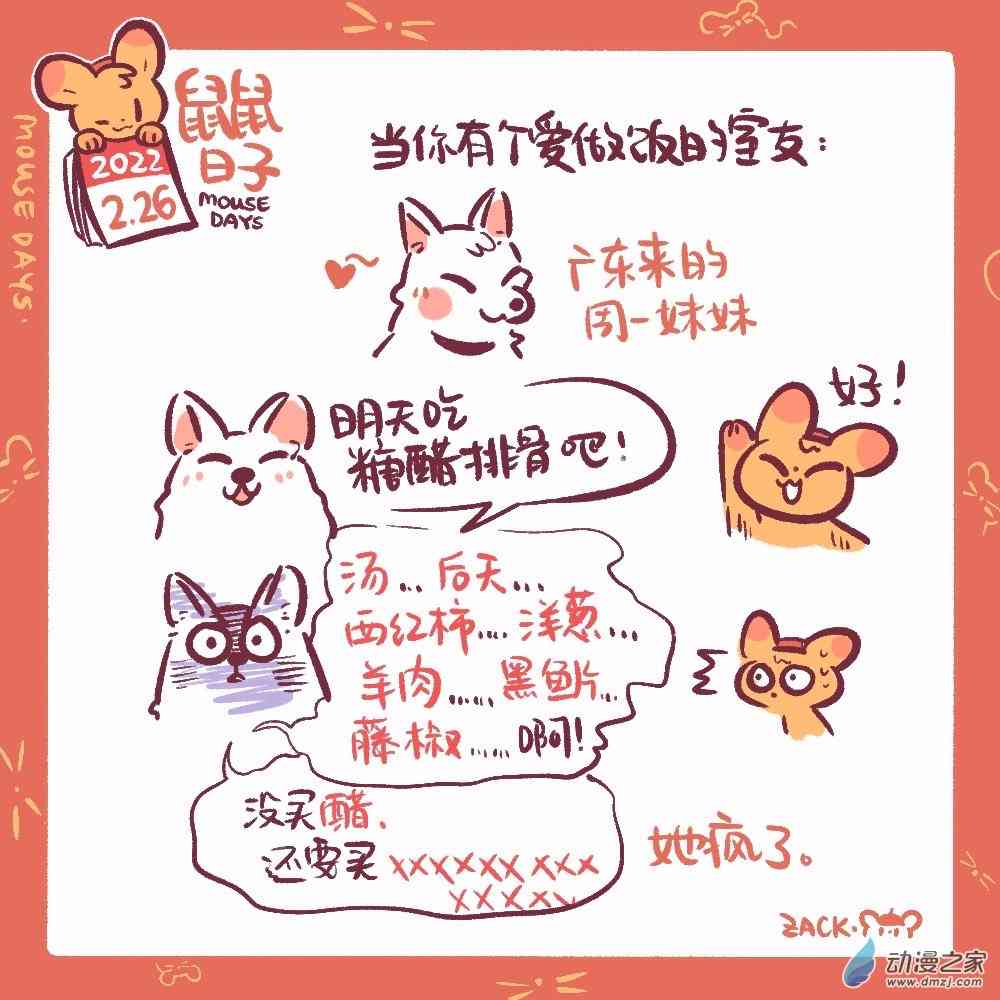 鼠鼠
日子
MOUSE
DAYS
2022
2.26
MOUSE DAYS.
当你有个爱做饭的室友:
广东来的
周一妹妹
明天吃
糖醋排骨吧!
好!
汤...后天...
西红柿....洋葱...
羊肉.....黑鱼片...
藤椒.....啊!
没买醋.
还要买 XXXXXX XXX
XXXXX
她疯了。
ZACK.
动漫之家
www.dmzj.com